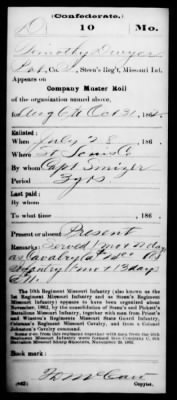 (Confederate.)
D 10 Mo.
Timothy Dwyer
Pvt, Co. , Steen's Reg't, Missouri Inf.
Appears on
Company Muster Roll
of the organization named above,
for Aug 6 to Oct 31, 1862.
Enlisted:
When July 28, 186 .
Where St Louis Co
By whom Capt Smizer
Period 3 yrs
Last paid:
By whom
To what time , 186 .
Present or absent Present
Remarks: Served 1 mo 12 days
as Cavalry
Infantry 1 mo 13 days
The 10th Regiment Missouri Infantry (also known as the
Regiment Missouri Infantry and as Steen's Regiment
Missouri Infantry) appears to have been organized about
November, 1862, by the consolidation of Steen's and Pickett's
Battalions Missouri Infantry, together with men from
and Winston's Regiments Missouri State Guard Infantry,
Coleman's Regiment Missouri Cavalry, and from a Colonel
Johnston's Cavalry command.
Book mark:
Copyist.